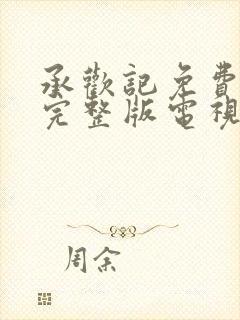 承歡記免費
完整版電視
周余